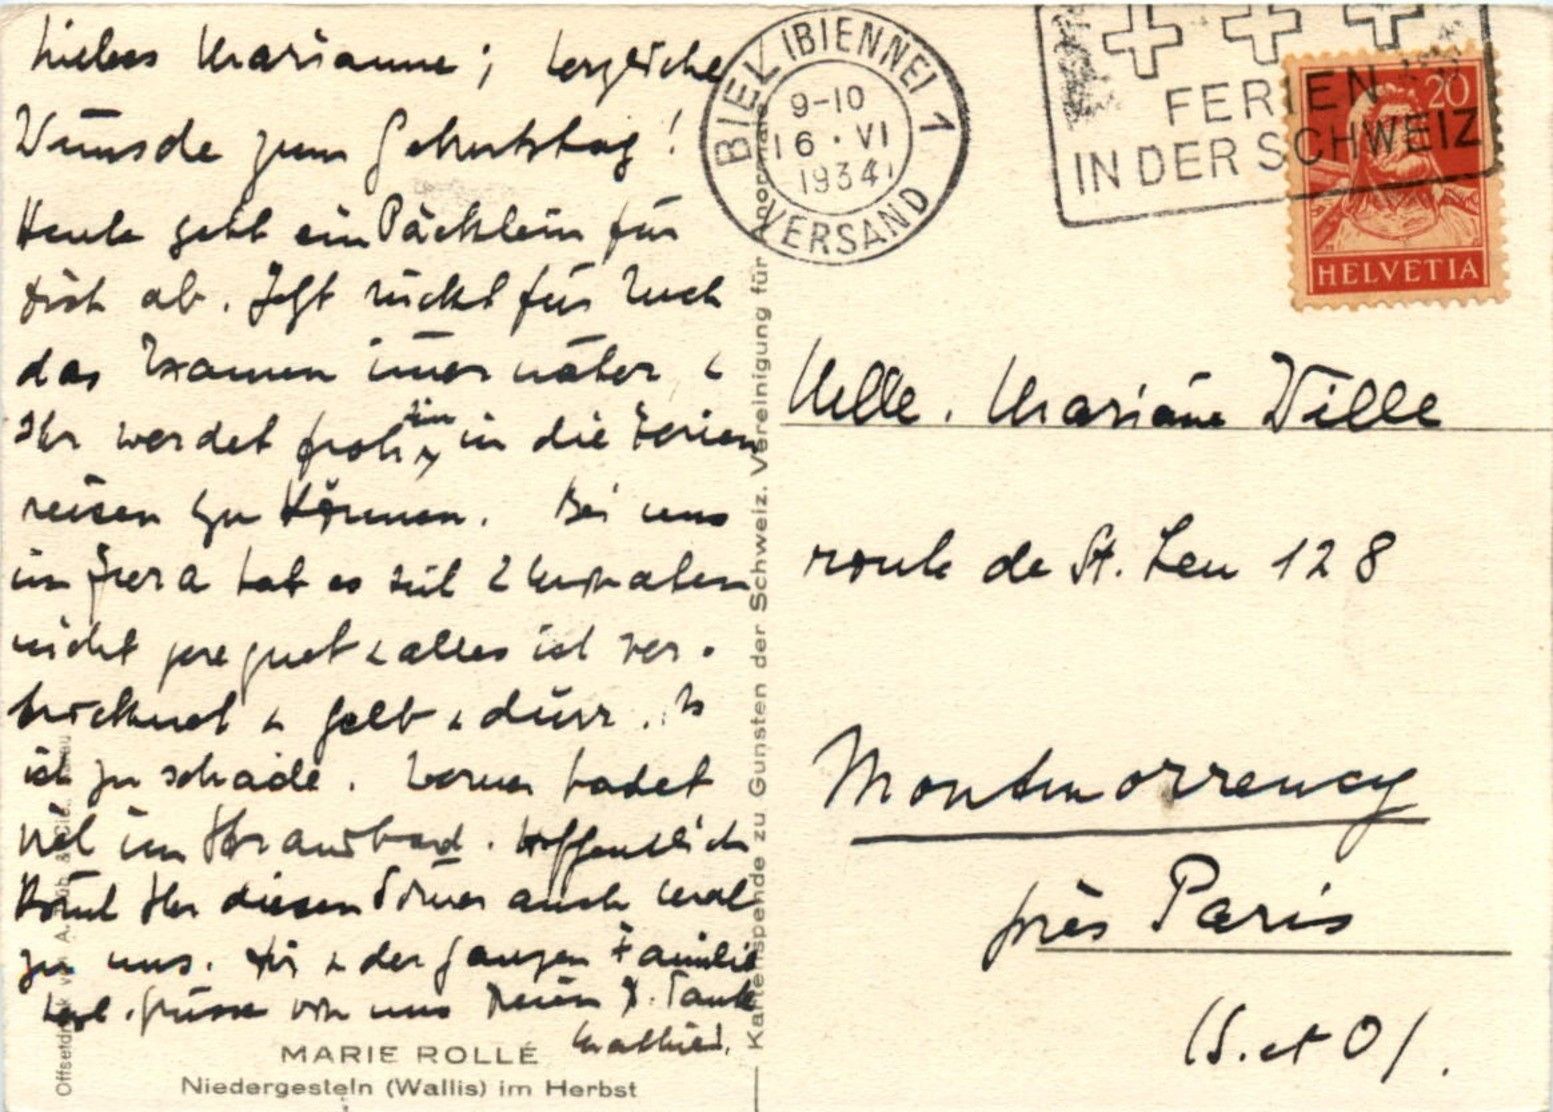 Liebes Marianne; herzliche
Wünsche zum Geburtstag!
Heute geht ein Päcklein für
dich ab. Jetzt rückt für Euch
das Examen immer näher &
Ihr werdet froh sein, in die Ferien
reisen zu können. Bei uns
in hat es seit 2 Monaten
nicht geregnet & alles ist ver-
trocknet & gelb & dürr. Es
ist zu schade. Werner badet
viel im Strandbad. Hoffentlich
kommt Ihr diesen Sommer auch mal
zu uns. Dir & der ganzen Familie
herzl. Grüsse von uns Deine Tante
Mathild.
MARIE ROLLÉ
Niedergesteln (Wallis) im Herbst
Offsetdruck von A. & Cie.
Kartenspende zu Gunsten der Schweiz. Vereinigung für Anormale
BIEL (BIENNE) 1
9-10
16 · VI
1934
VERSAND
FERIEN
IN DER SCHWEIZ
20
HELVETIA
Melle. Mariane Wille
route de St. Leu 128
Montmorrency
près Paris
(S. et O).